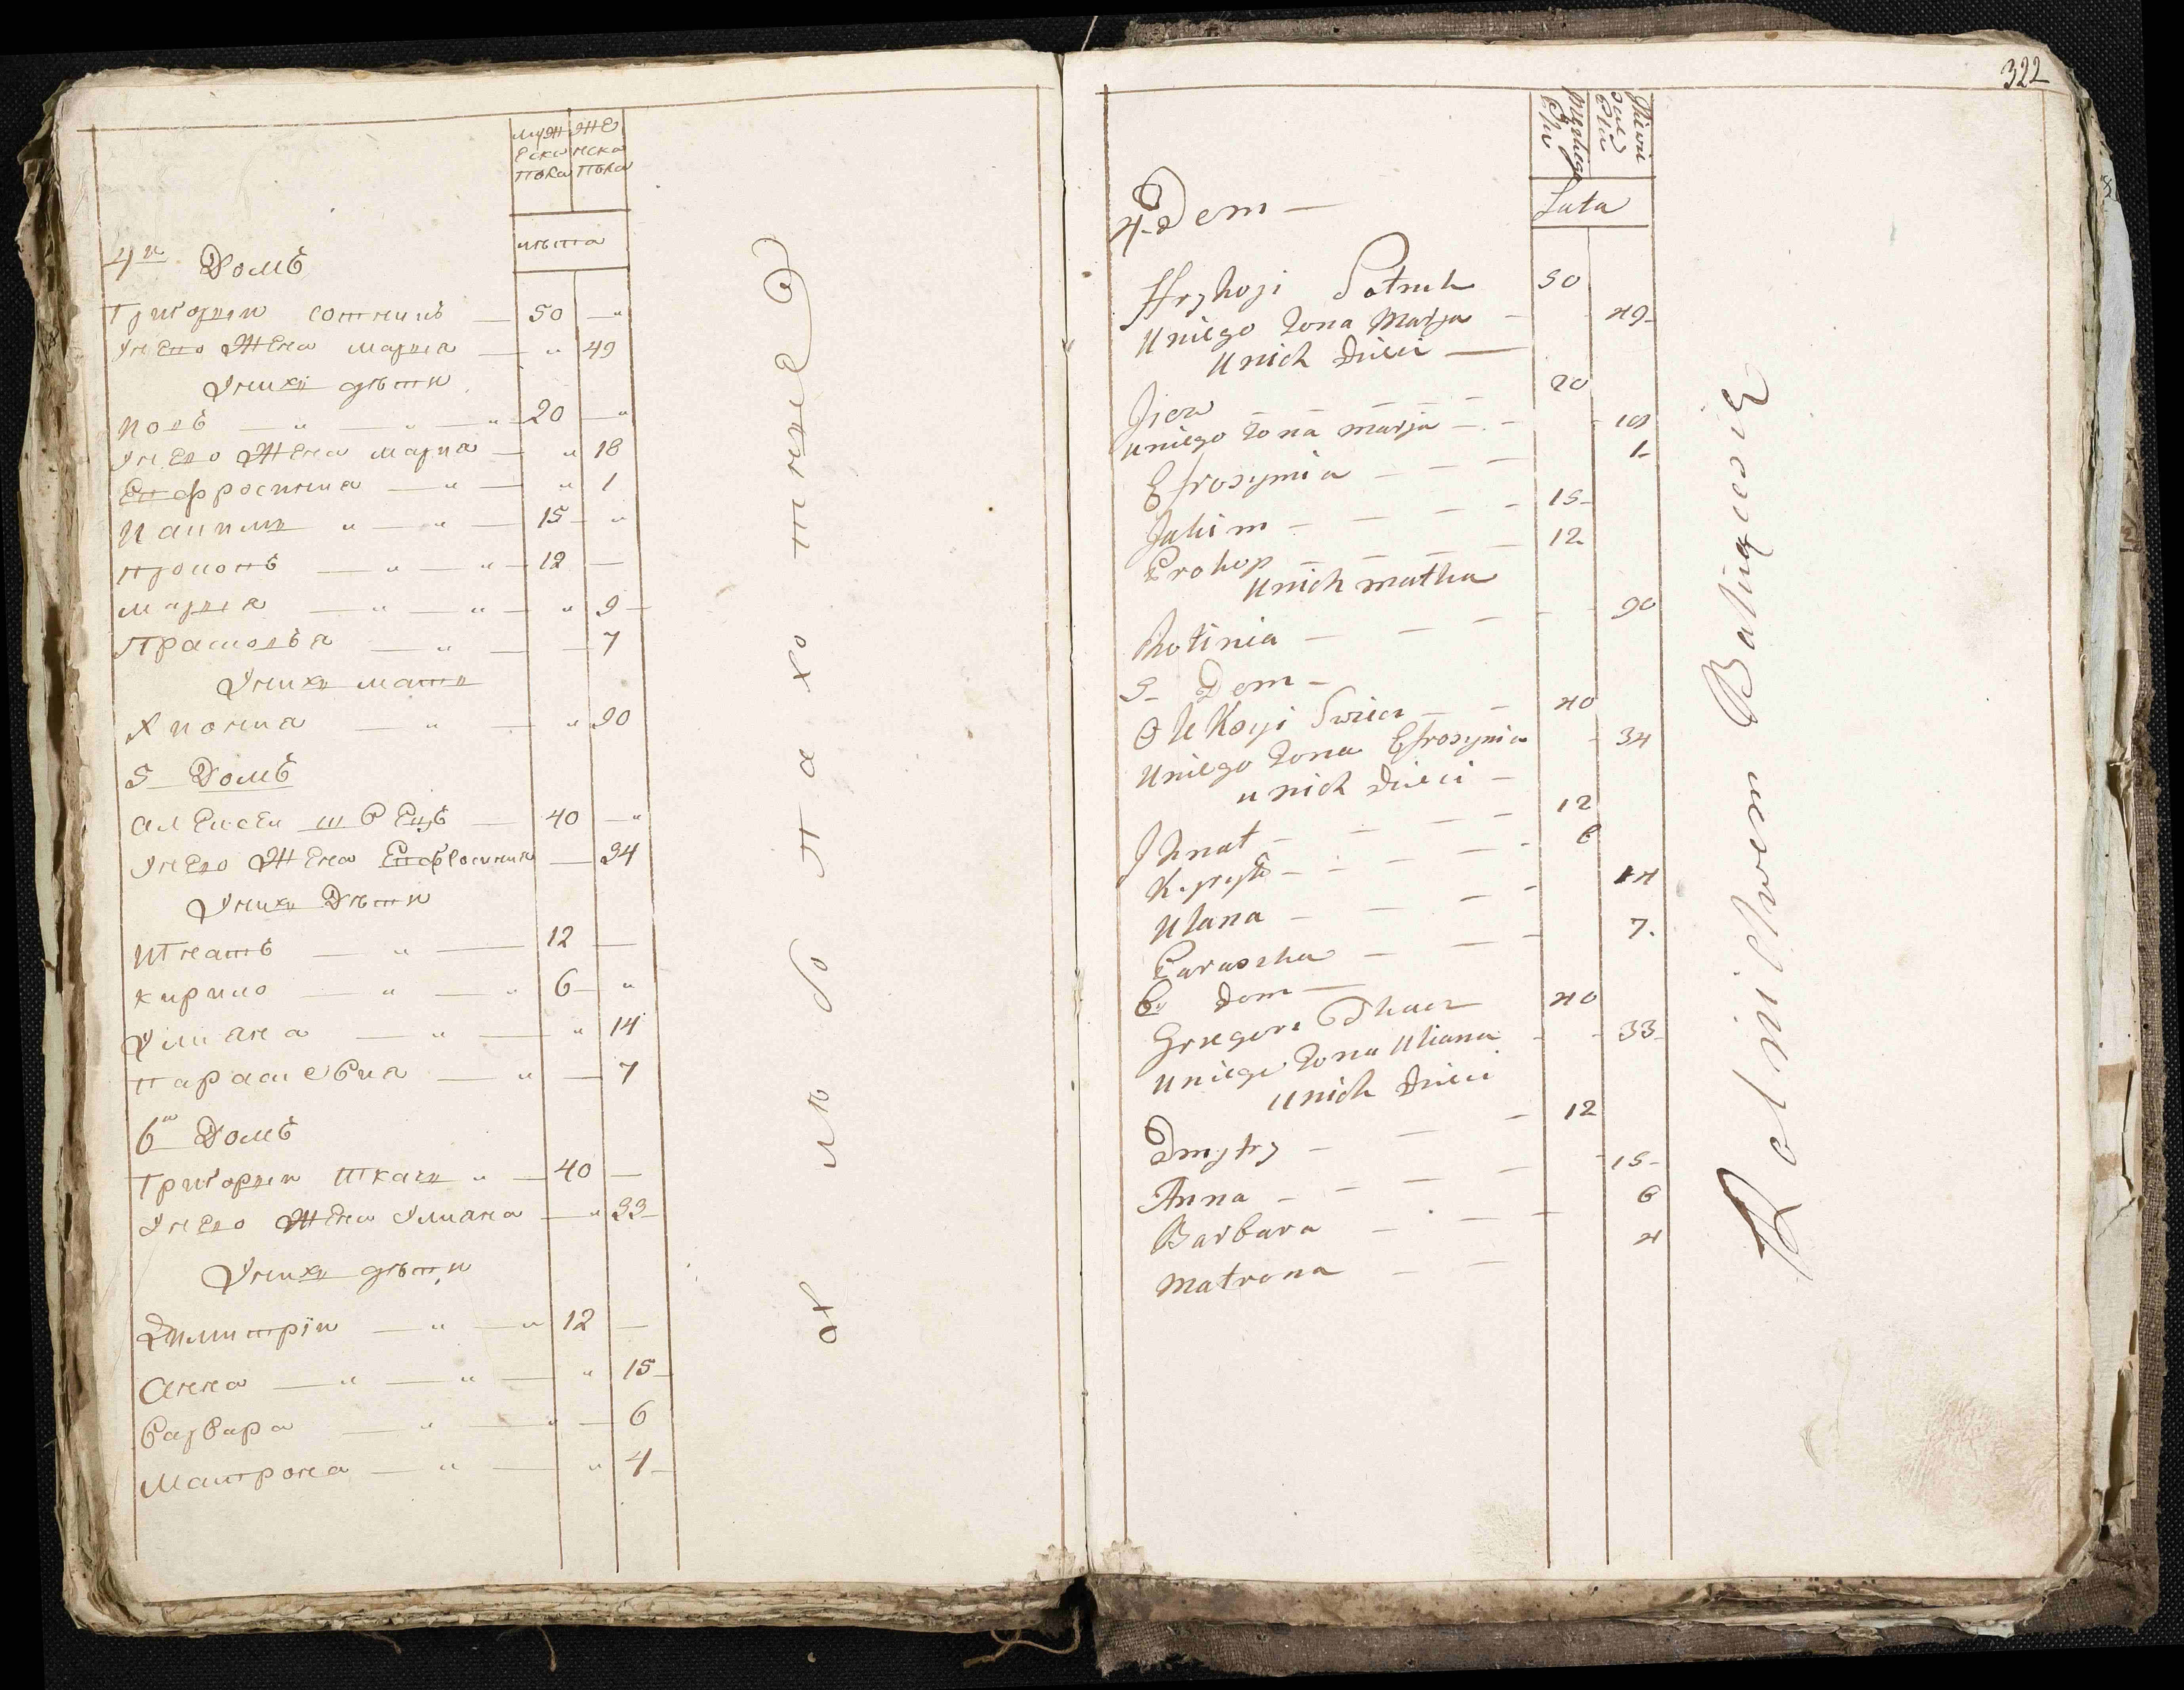 мужескa пола
женска пола
лѣта
4й Домъ
Григорий сотникъ — 50 — „
Унего Жена мария — „ 49
Унихъ дѣти
Иовъ — „ — „ — „ 20 — „
Унего Жена мария — „ 18
Евфросиния — „ — „ 1
Иакимъ „ — „ — 15 — „
прокопъ — „ — „ 12 —
мария — „ — „ — „ 9 —
Прасковѣя — „ — — 7
Унихъ мати
Хиониа — „ — „ 90
5 Домъ
Алексеи швецъ — 40 — „
Унего Жена Евфросиния — 34
Унихъ Дѣти
Игнатъ — „ — 12 —
кирило — „ — „ 6 — „
Улиана — „ — „ 14
параскевиа — „ — 7
6й Домъ
Григорий Ткачъ „ — 40 —
Унего Жена Улиана — „ 33 —
Унихъ дѣти
Димитрїи — „ — „ 12 —
Анна — „ — „ — „ 15 —
Варвара — „ — „ — 6
Матрона — „ — „ 4 —
322
Lata
4. Dom —
Hryhoyi Sotnik 50
Uniego Zona Marya — 49 —
Unich Dzieci —
Jiow — — — — 20
uniego zona marja — - 18
Efrosymia — — — 1 —
Jakim — — — — 15 —
Prokop — — — — 12
Unich matka
Chotinia — — — 90
5 — Dom —
Olekseyi Swiec — — 40
Uniego Zona Efrosynia - 34
unich Dzieci —
Ihnat — — — — 12
Kyryło — - — — 6
Ulana — — — — 14
Paraszka — — — 7.
6. Dom —
Grzegorz Tkacz 40
Uniego Zona Uliana - - 33
Unich Dzieci
Dmytry — — — 12
Anna — — — — 15 —
Barbara — - — — 6
Matrona — — 4